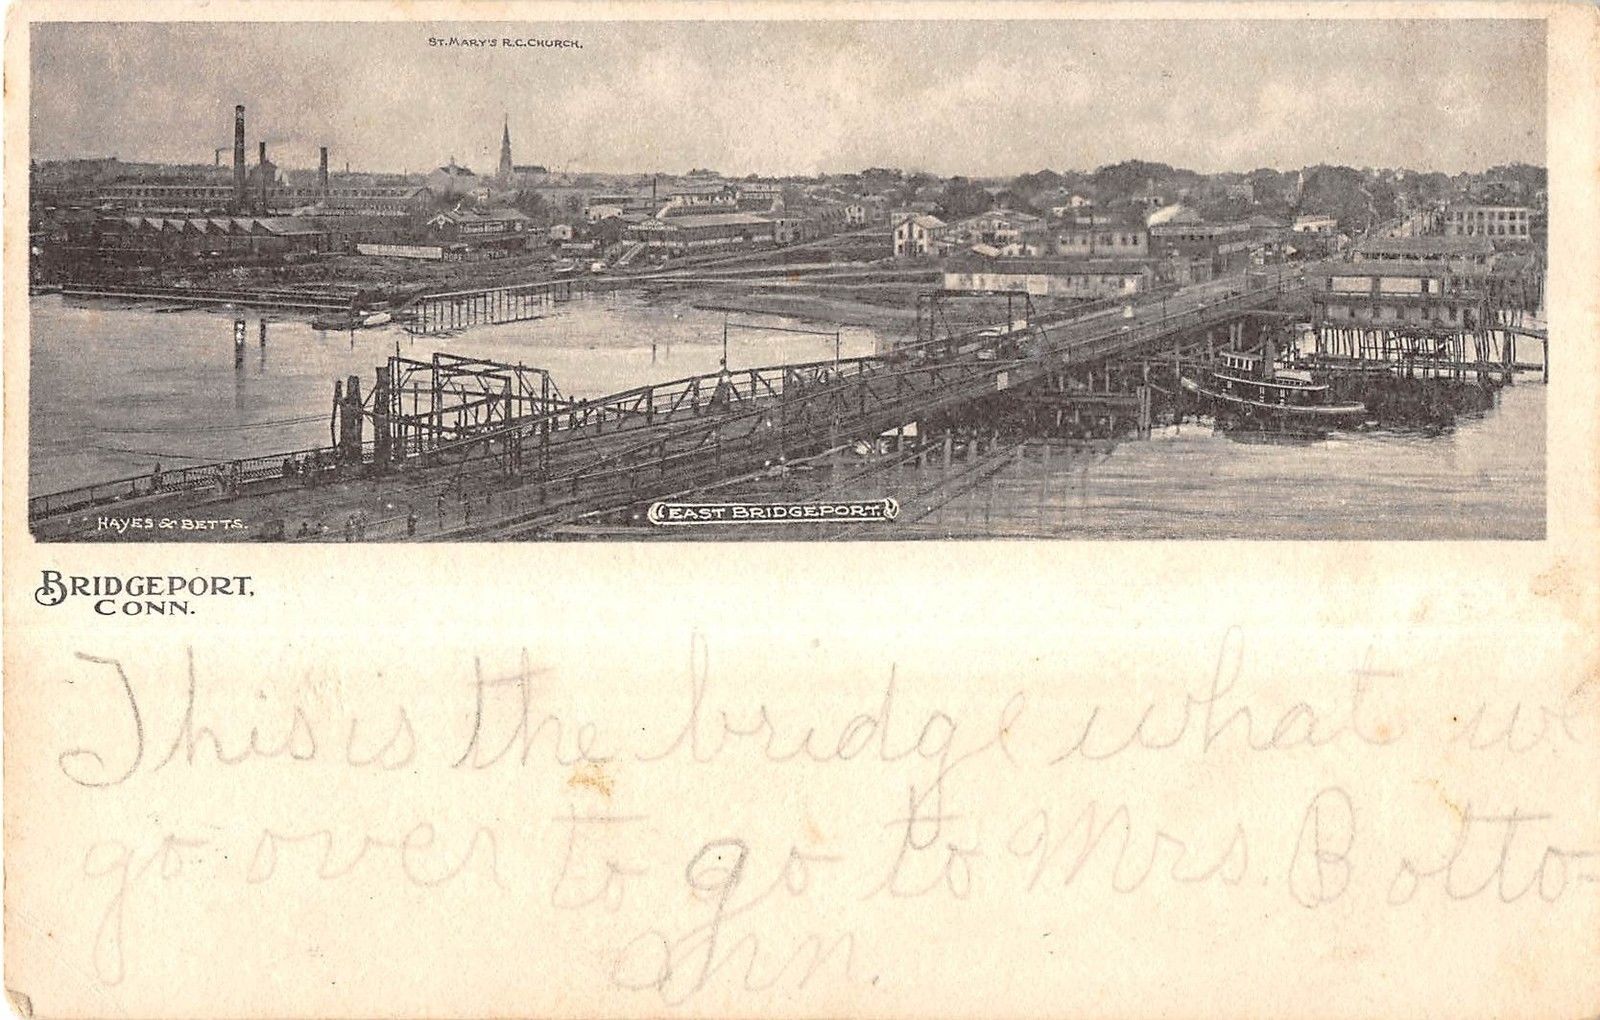 ST. MARY'S R.C. CHURCH.
HAYES & BETTS.
EAST BRIDGEPORT.
BRIDGEPORT,
CONN.
This is the bridge what we
go over to go to Mrs. Botto-